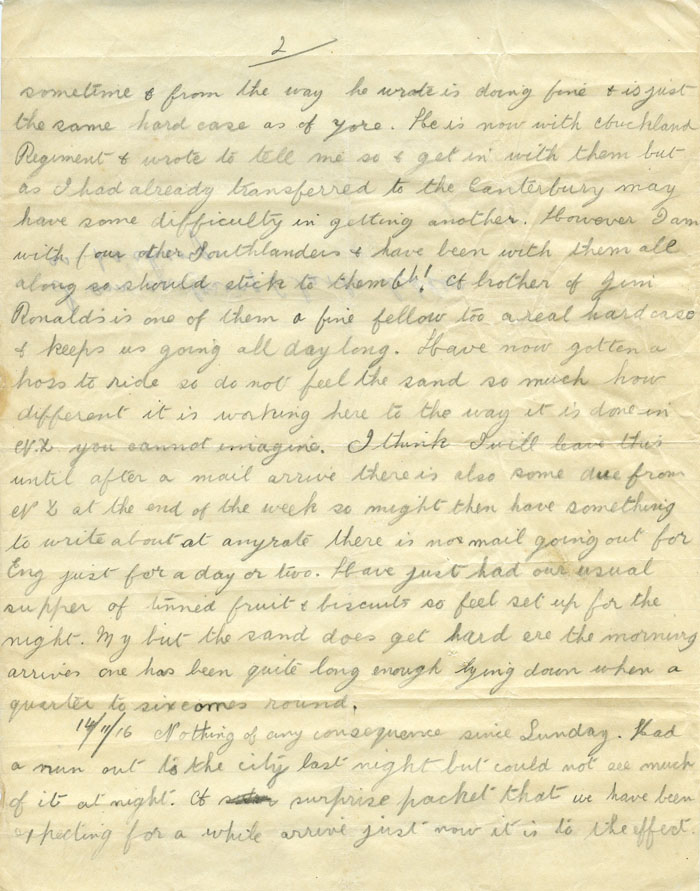 2
sometime & from the way he wrote is doing fine & is just
the same hard case as of yore. He is now with Auckland
Regiment & wrote to tell me so & get in with them but
as I had already transferred to the Canterbury may
have some difficulty in getting another. However I am
with four other Southlanders & have been with them all
along so should stick to them Eh! A brother of Jim
Ronalds is one of them a fine fellow too a real hard case
& keeps us going all day long. Have now gotten a
hoss to ride so do not feel the sand so much how
different it is working here to the way it is done in
N.Z you cannot imagine. I think I will leave this
until after a mail arrive there is also some due from
N Z at the end of the week so might then have something
to write about at anyrate there is no mail going out for
Eng just for a day or two. Have just had our usual
supper of tinned fruit & biscuits so feel set up for the
night. My but the sand does get hard ere the morning
arrives one has been quite long enough lying down when a
quarter to six comes round.
14/11/16 Nothing of any consequence since Sunday. Had
a run out to the city last night but could not see much
of it at night. A surprise packet that we have been
expecting for a while arrive just now it is to the effect.